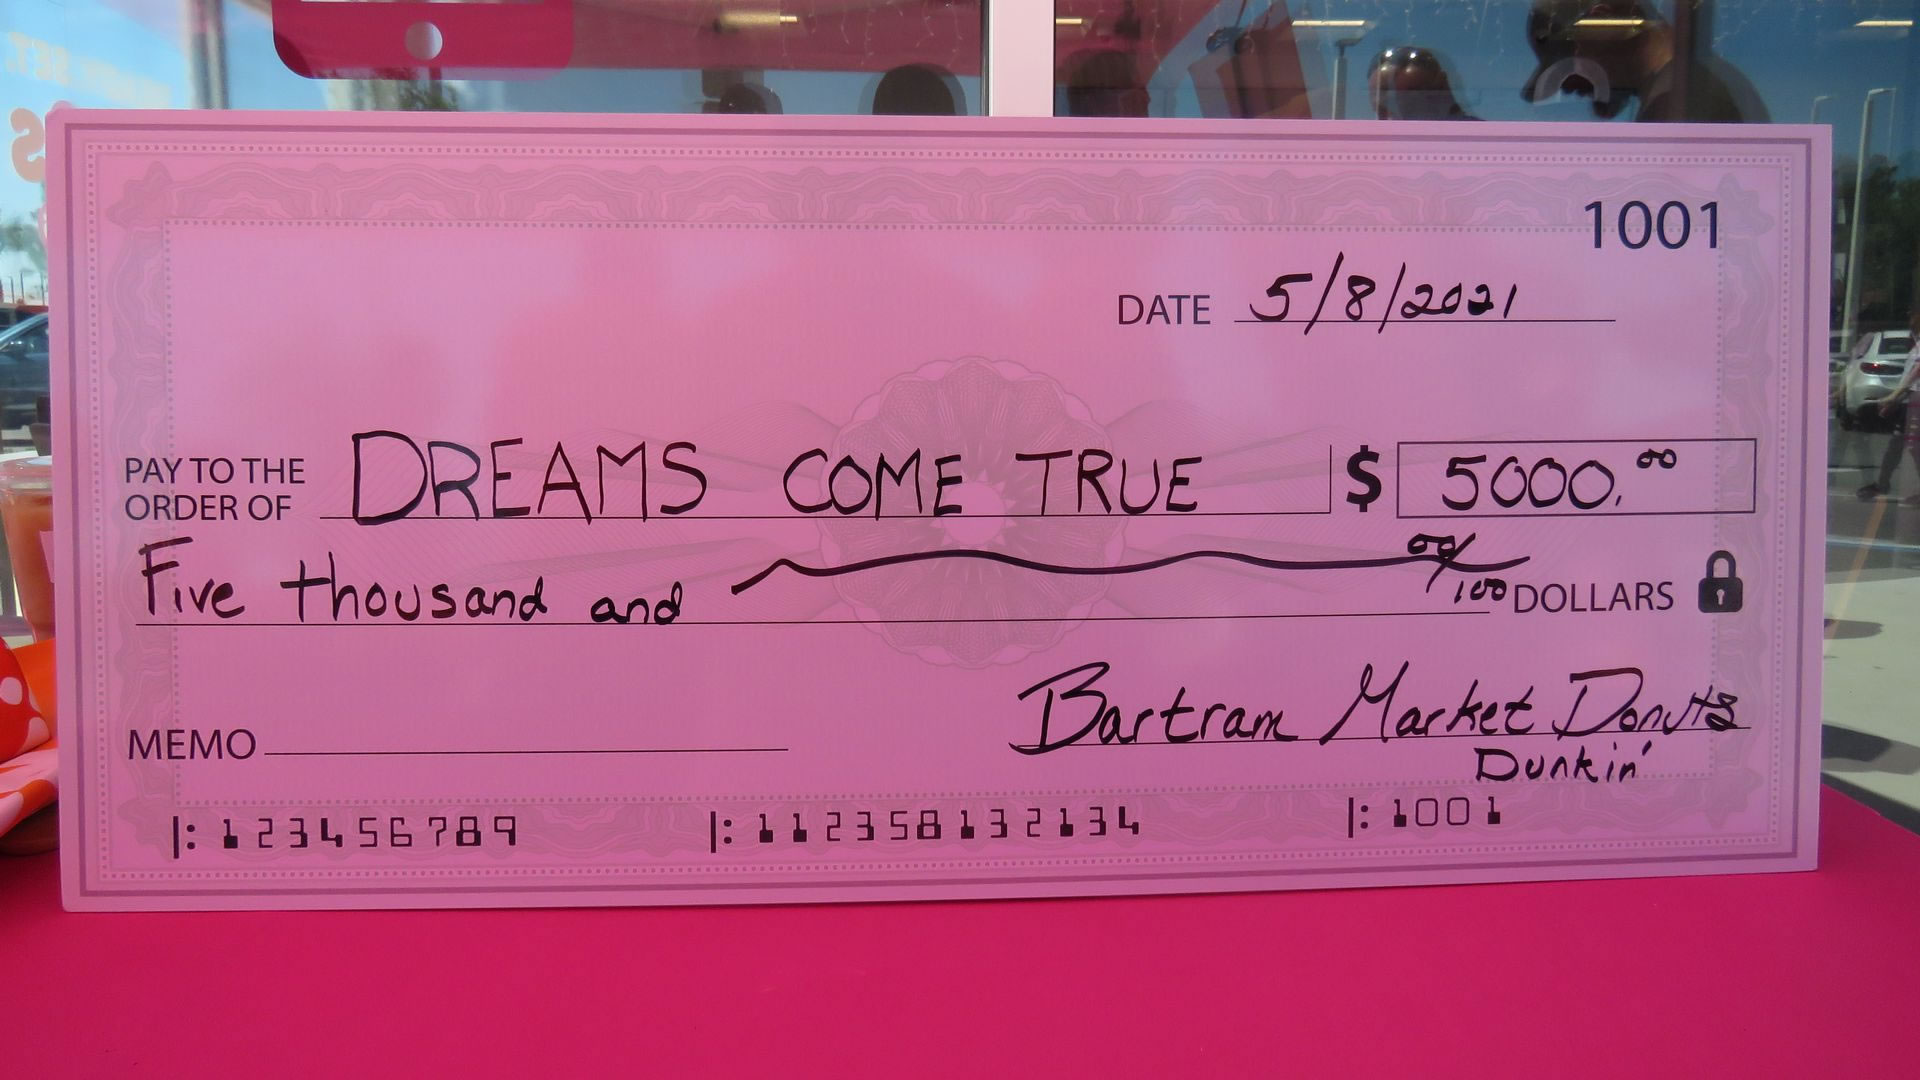 1001
DATE 5/8/2021
PAY TO THE ORDER OF DREAMS COME TRUE $ 5000.00
Five thousand and 00/100 DOLLARS
Bartram Market Donuts
MEMO
Dunkin'
|: 123456789 |: 112358132134 |: 1001